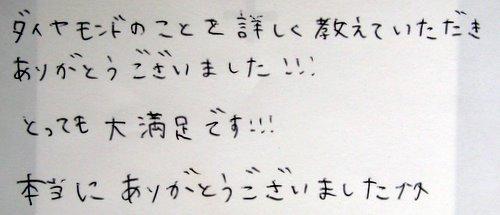 ダイヤモンドのことを詳しく教えていただき
ありがとうございました!!!
とっても大満足です!!!
本当にありがとうございました